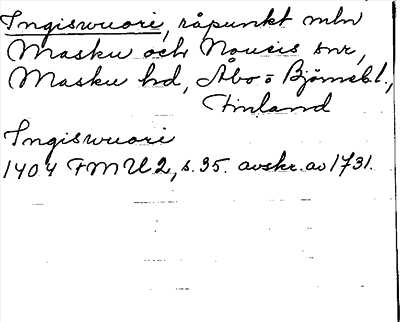 Ingiswuori, råpunkt mln
Masku och Nousis snr,
Masku hd, Åbo o Björneb.l.,
Finland
Ingiswuori
1404 FMU2, s. 35. avskr. av 1731.